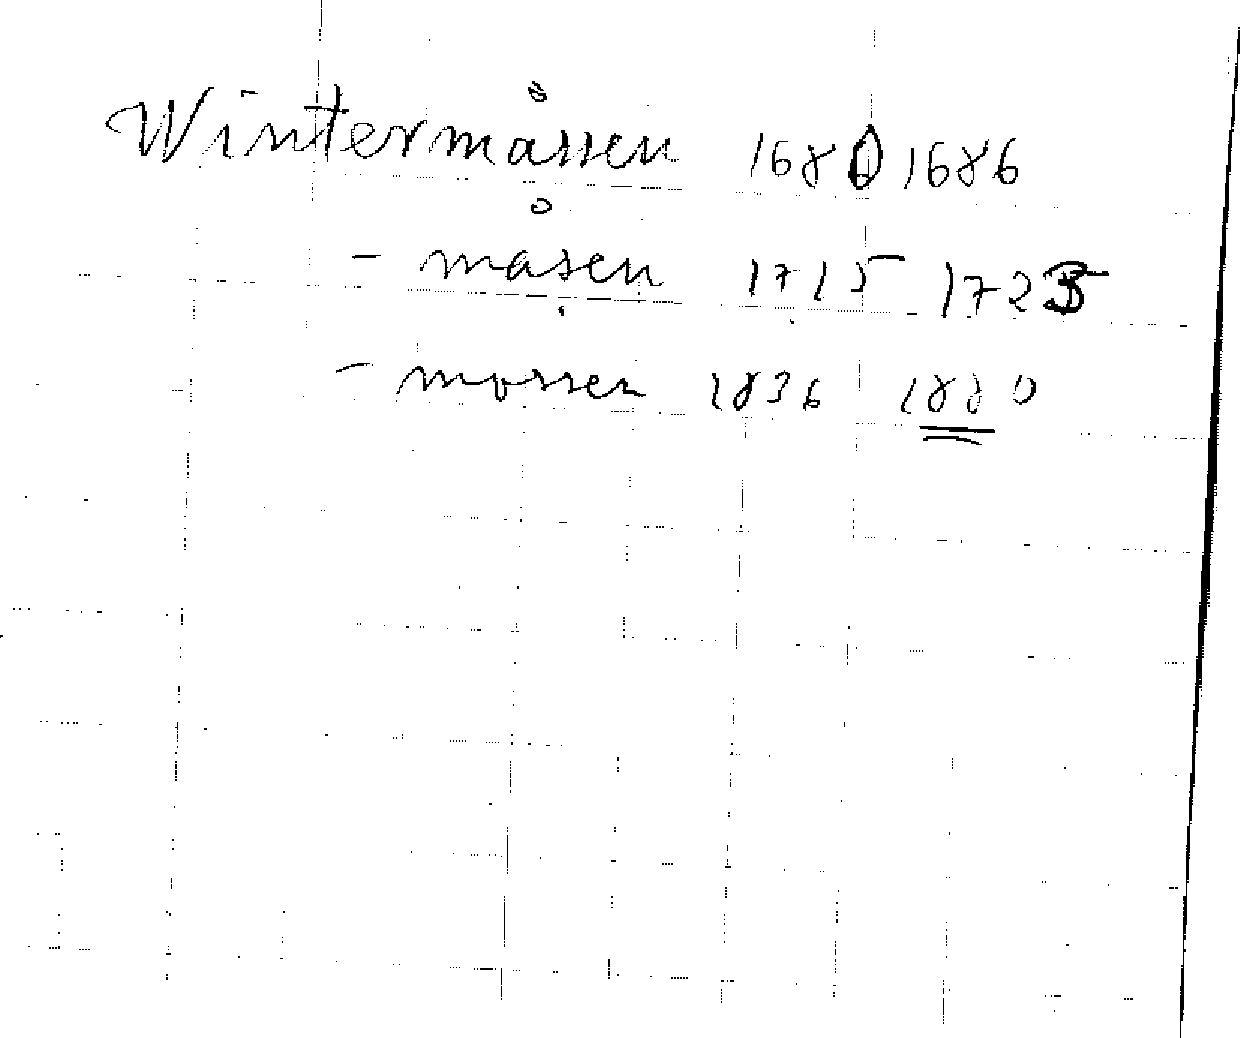 Wintermåssen 1680 1686
- måsen 1715 1725
- mossen 1836 1880